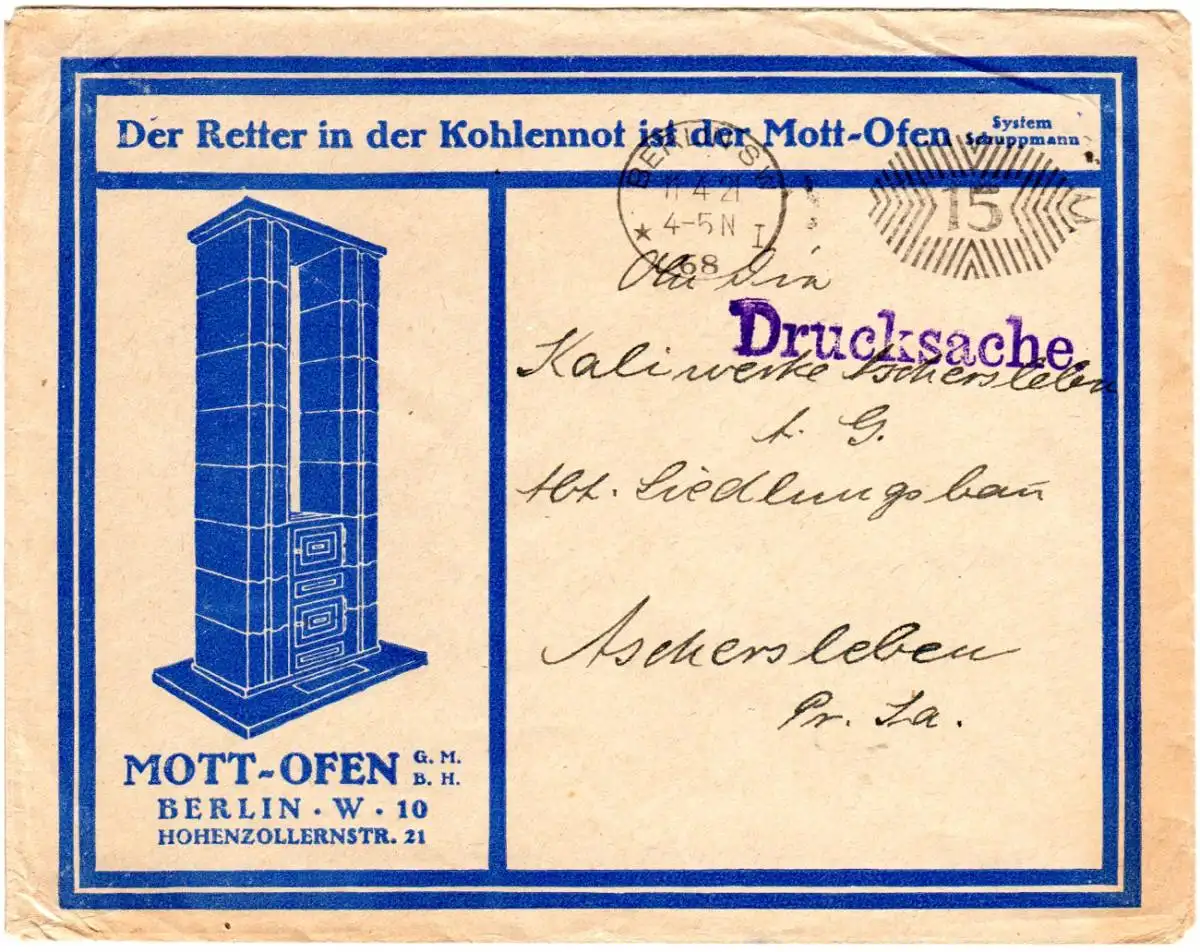 Der Retter in der Kohlennot ist der Mott-Ofen System Schuppmann
BERLIN SW
11.4.21
4-5 N
★ I
68
15
An die
Drucksache
Kaliwerke Aschersleben
A. G.
Abt. Siedlungsbau
Aschersleben
Pr. Sa.
MOTT-OFEN G. M. B. H.
BERLIN · W · 10
HOHENZOLLERNSTR. 21